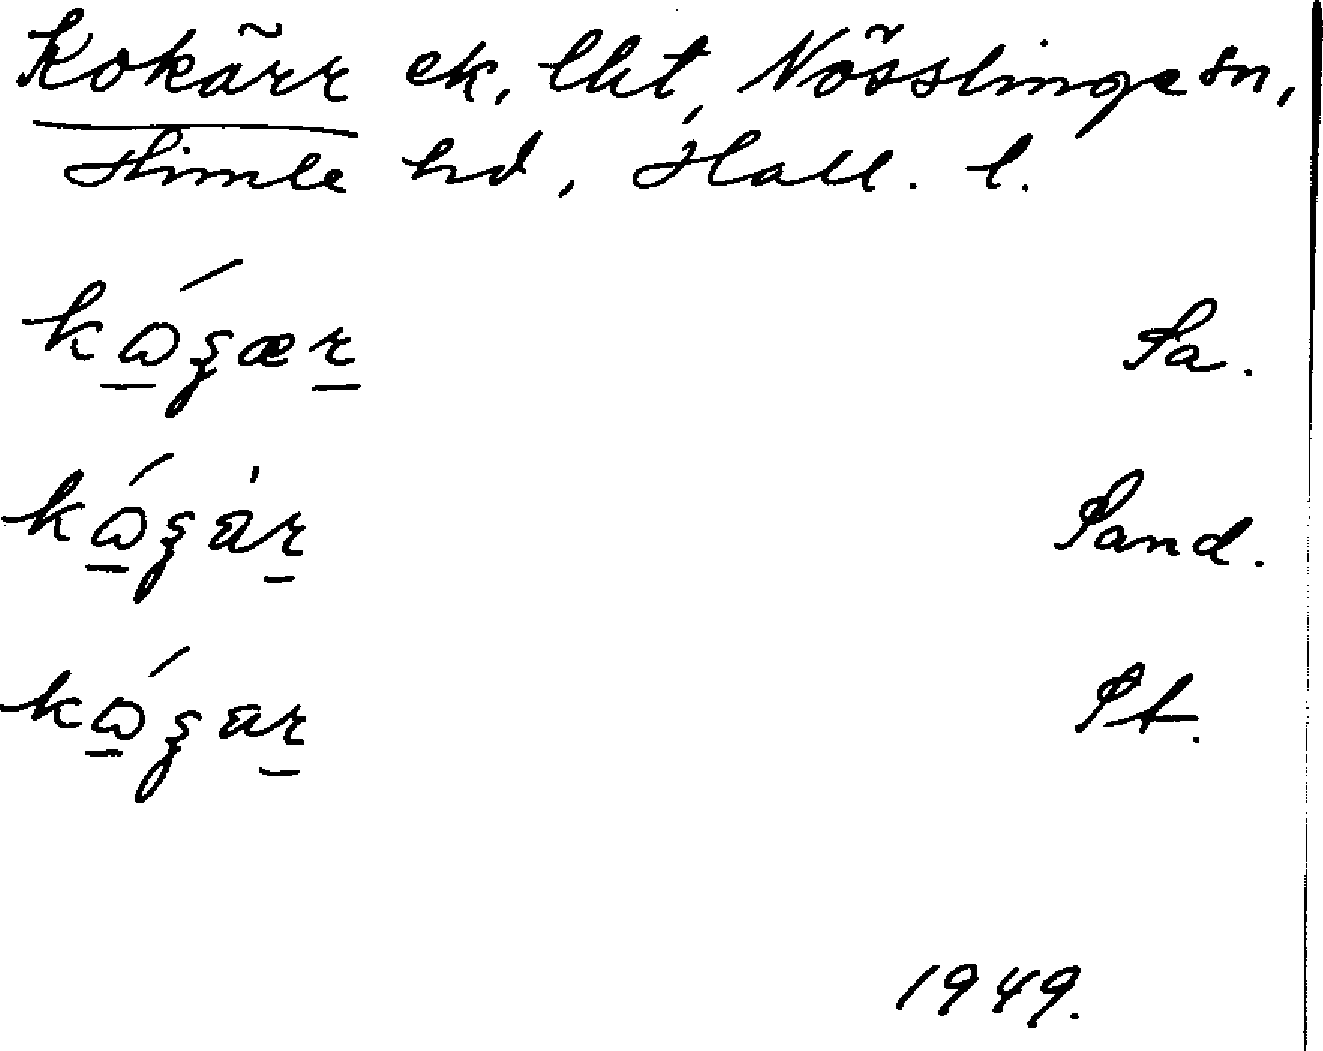 Kokärr ek. lht, Nösslinge sn,
Himle hd, Hall. l.
kώʒær Sa.
kώʒàr Sand.
kώʒar St.
1949.